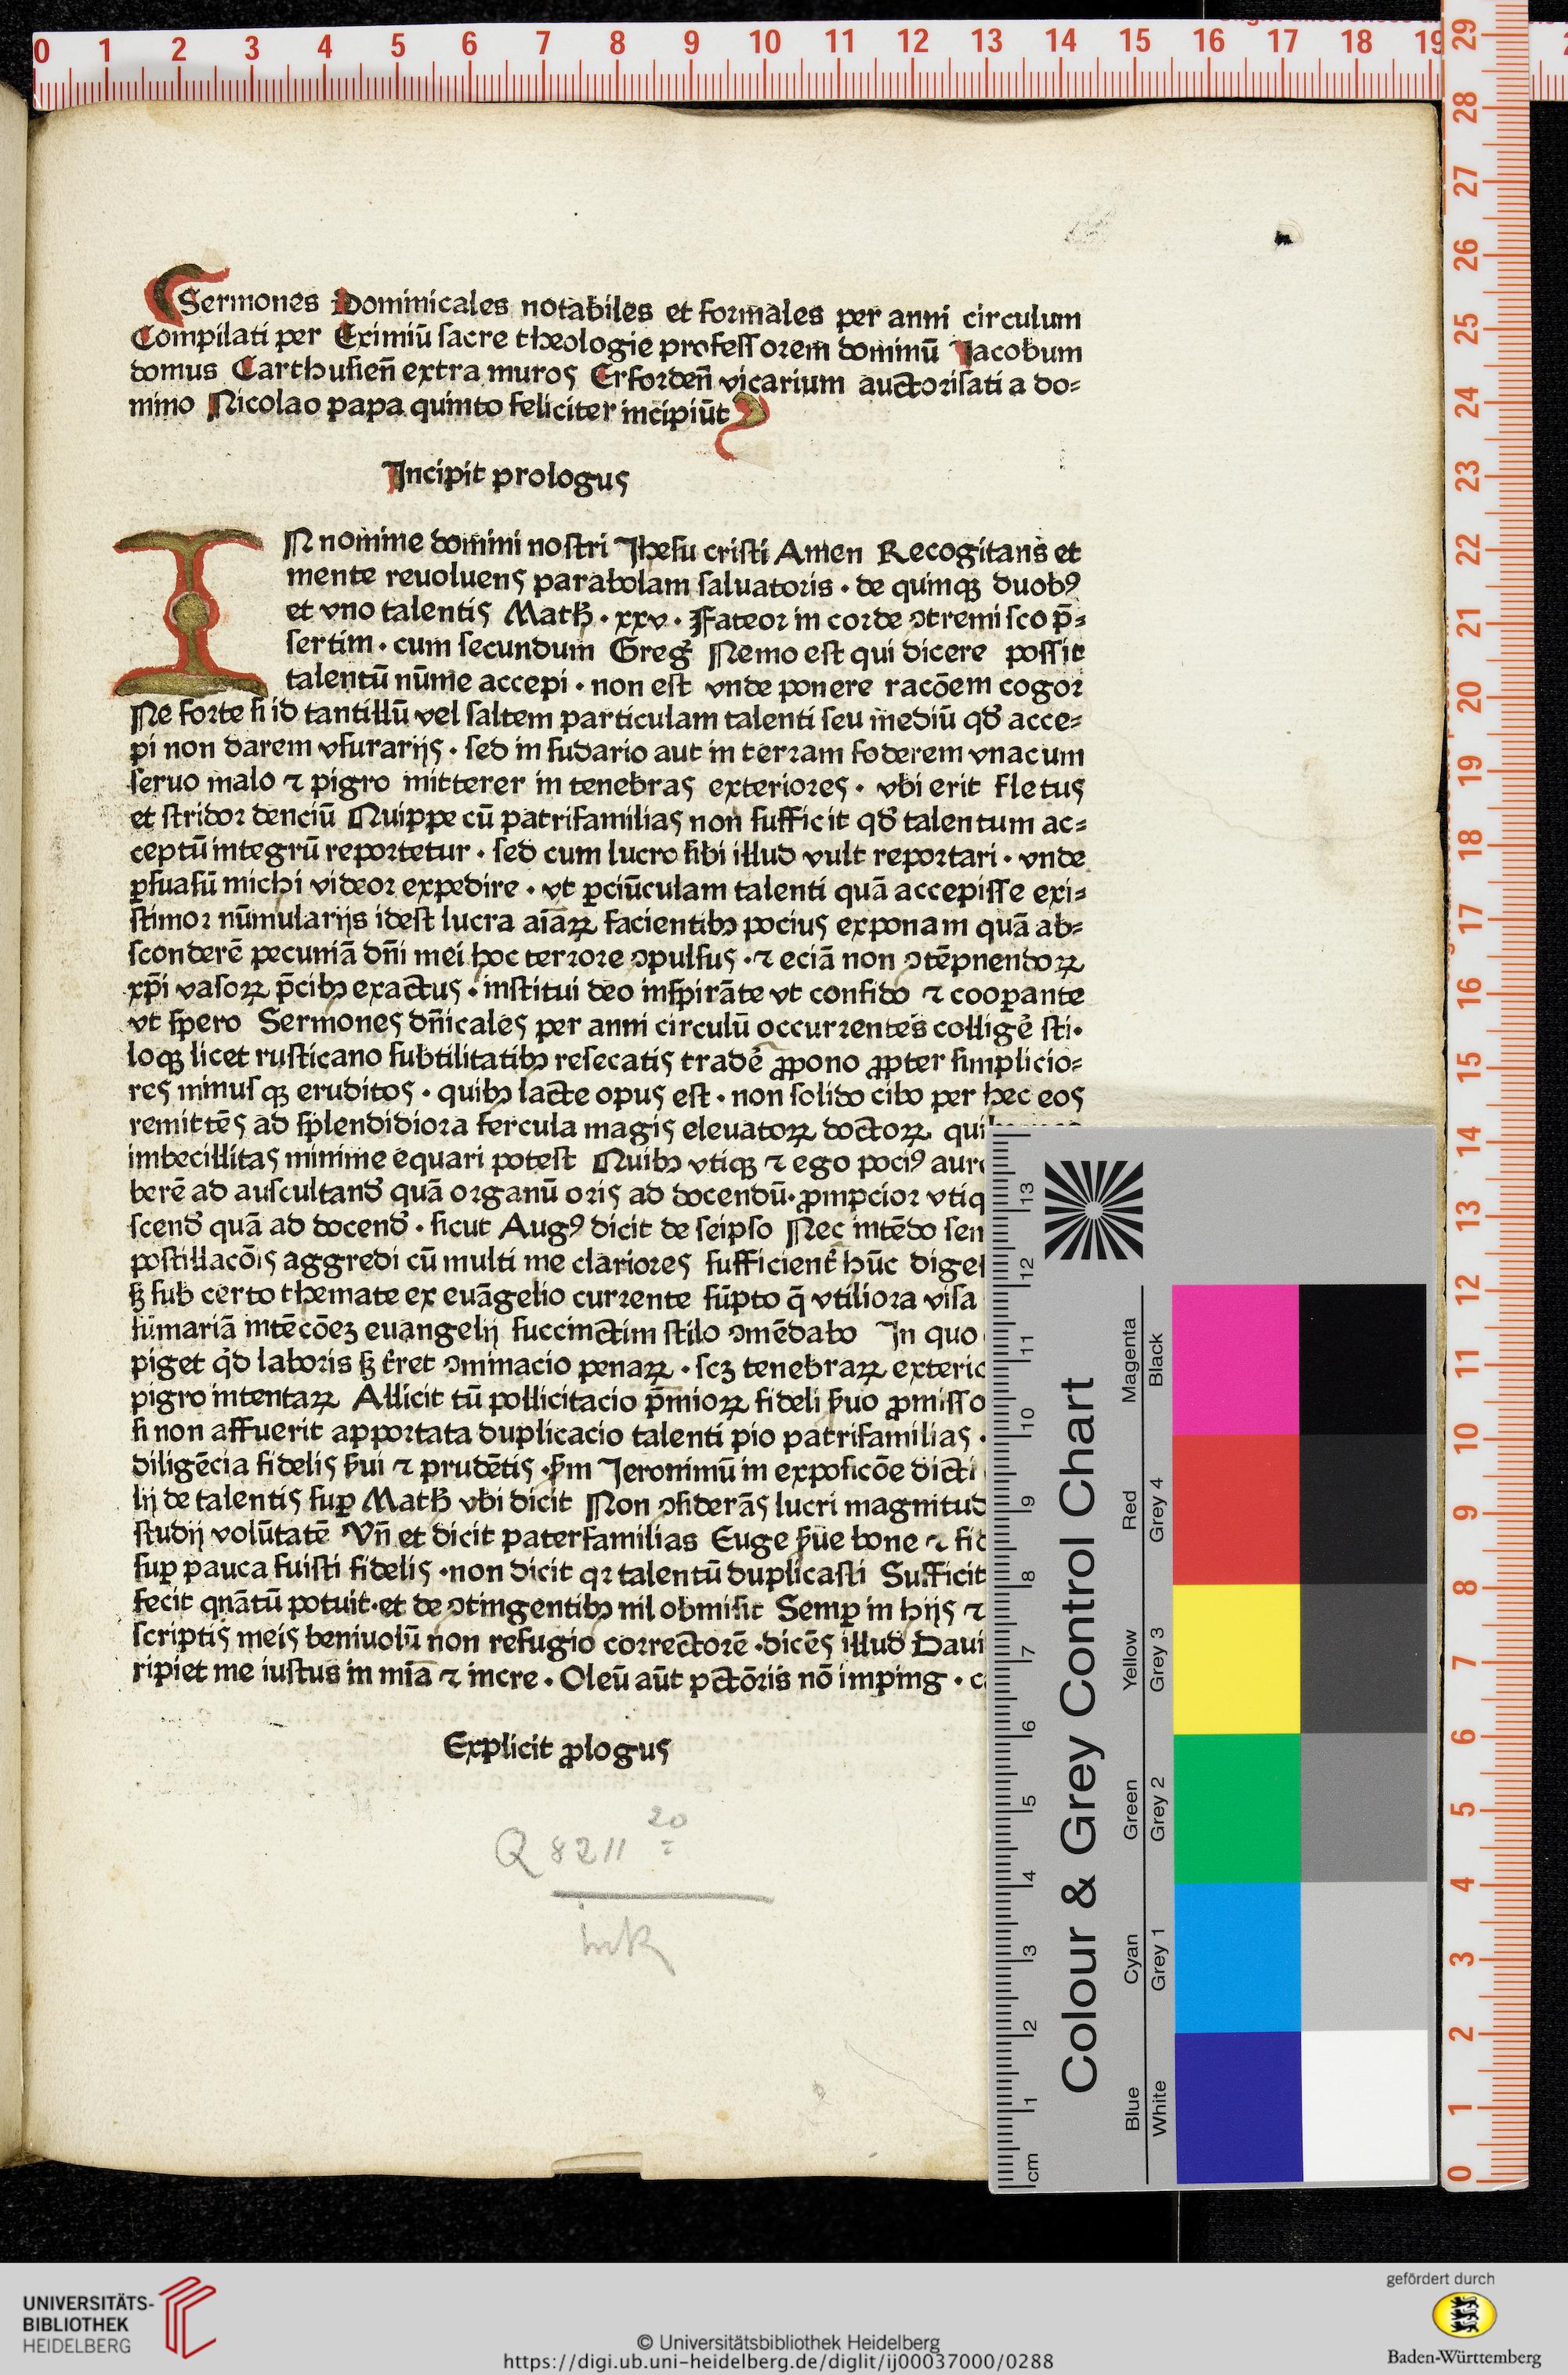 Sermones Dominicales notabiles et formales per anni circulum
Compilati per Eximiū sacre theologie professorem dominū Iacobum
domus Carthusień extra muros Erfordeñ vicarium auctorisati a do⸗
mino Nicolao papa quinto feliciter incipiūt
Incipit prologus
IN nomine domini nostri Jhesu cristi Amen Recogitans et
mente reuoluens parabolam saluatoris · de quinqꝫ duobꝰ
et vno talentis Math̄ · xxv · Fateor in corde ꝯtremisco p̄⸗
sertim · cum secundum Greg̉ Nemo est qui dicere possit
talentū nūme accepi · non est vnde ponere racōem cogor
Ne forte si id tantillū vel saltem particulam talenti seu mediū qđ acce⸗
pi non darem vsurarijs · sed in sudario aut in terram foderem vnacum
seruo malo ⁊ pigro mitterer in tenebras exteriores · vbi erit fletus
et stridor denciū Quippe cū patrifamilias non sufficit qđ talentum ac⸗
ceptū integrū reportetur · sed cum lucro sibi illud vult reportari · vnde
ꝑsuasū michi videor expedire · vt ꝑciūculam talenti quā accepisse exi⸗
stimor nūmularijs idest lucra aīaꝝ facientibꝫ pocius exponam quā ab⸗
sconderē pecuniā dn̄i mei hoc terrore ꝯpulsus · ⁊ eciā non ꝯtēpnendoꝝ
xp̄i vasoꝝ p̄cibꝫ exactus · institui deo inspirāte vt confido ⁊ cooꝑante
vt spero Sermones dn̄icales per anni circulū occurrentes collige᷑ sti·
loqꝫ licet rusticano subtilitatibꝫ resecatis trade᷑ ꝓpono ꝓpter simplicio⸗
res minusqꝫ eruditos · quibꝫ lacte opus est · non solido cibo per hec eos
remittēs ad splendidiora fercula magis eleuatoꝝ doctoꝝ
imbecillitas minime equari potest Quibꝫ vtiqꝫ ⁊ ego pociꝰ
berē ad auscultanđ quā organū oris ad docendū· ꝓmpcior
scenđ quā ad docenđ · sicut Augꝰ dicit de seipso Nec intēdo
postillacōis aggredi cū multi me clariores sufficient᷑ hūc
sꝫ sub certo themate ex euāgelio currente sūpto q̄ vtiliora visa
sūmariā intēcōeꝫ euangelij succinctim stilo ꝯmēdabo In quo
piget qͥd laboris sꝫ t᷑ret ꝯminacio penaꝝ · scꝫ tenebraꝝ
pigro intentaꝝ Allicit tū pollicitacio p̄mioꝝ fideli ẜuo ꝓmisso
si non affuerit apportata duplicacio talenti pio patrifamilias ·
diligēcia fidelis ẜui ⁊ prudētis · ẜm Jeronimū in exposicōe dicti
lij de talentis suꝑ Math̄ vbi dicit Non ꝯsiderās lucri
studij volūtatē Vn̄ et dicit paterfamilias Euge ẜue bone ⁊
suꝑ pauca fuisti fidelis · non dicit qꝛ talentū duplicasti Sufficit
fecit qn̄atū potuit· et de ꝯtingentibꝫ nil obmisit Semꝑ in hijs ⁊
scriptis meis beniuolū non refugio correctorē · dicēs illud
ripiet me iustus in mīa ⁊ incre · Oleū aūt pctōris nō imping ·
Explicit ꝓlogus
Q 8211 20
0 1 2 3 4 5 6 7 8 9 10 11 12 13 14 15 16 17 18 19
29 28 27 26 25 24 23 22 21 20 19 18 17 16 15 14 13 12 11 10 9 8 7 6 5 4 3 2 1 0
13 12 11 10 9 8 7 6 5 4 3 2 1 cm
Colour & Grey Control Chart
Magenta Black
Red Grey 4
Yellow Grey 3
Green Grey 2
Cyan Grey 1
Blue White
UNIVERSITÄTS-
BIBLIOTHEK
HEIDELBERG
© Universitätsbibliothek Heidelberg
https://digi.ub.uni-heidelberg.de/diglit/ij00037000/0288
gefördert durch
Baden-Württemberg